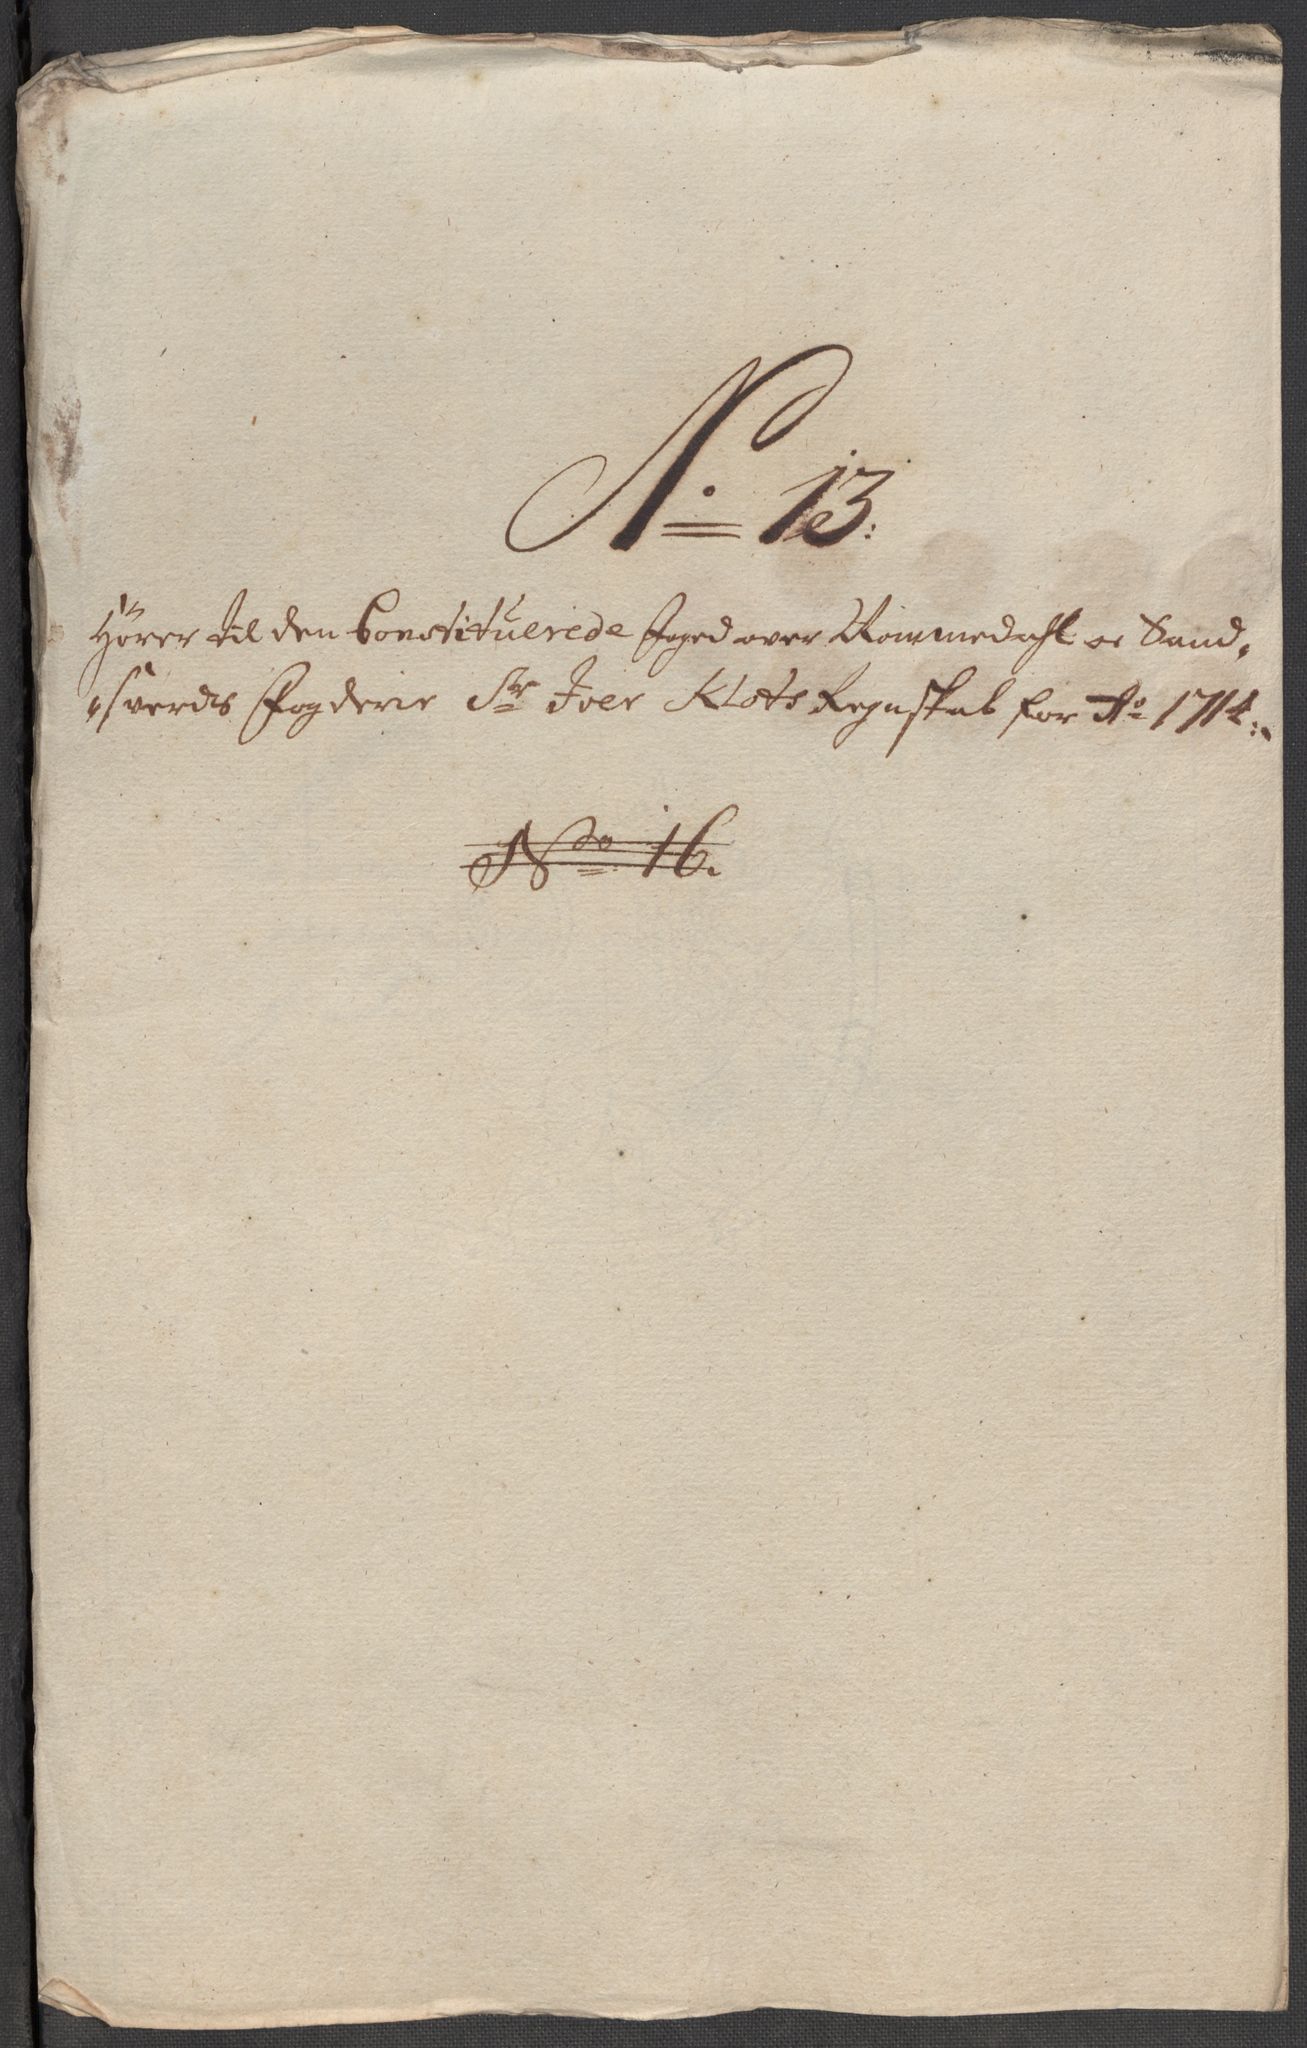 No 13:
Hörer til den Constituerede Foged over Nommedahl oc Sand,
,sverds Fogderie Sr Iver Klots Regnskab for Ao 1714:,
No 16.